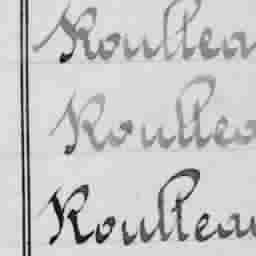 Roullea
Roulleo
Roulleau